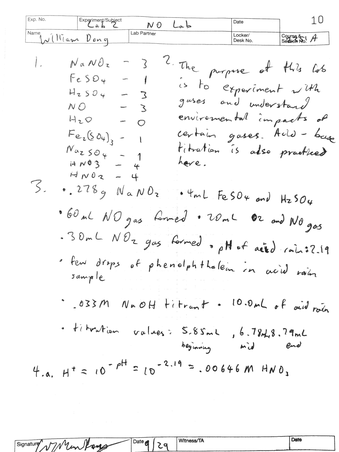 Exp. No. Experiment/Subject Lab 2 NO Lab Date 10
Name William Dong Lab Partner Locker/Desk No. Course & Section No. A
1. NaNO2 - 3
FeSO4 - 1
H2SO4 - 3
NO - 3
H2O - 0
Fe2(SO4)3 - 1
Na2SO4 - 1
HNO3 - 4
HNO2 - 4
2. The purpose of this lab
is to experiment with
gases and understand
enviremental impacts of
certain gases. Acid-base
titration is also practiced
here.
3. • .278g NaNO2 • 4mL FeSO4 and H2SO4
• 60mL NO gas formed • 20mL O2 and NO gas
• 30mL NO2 gas formed • pH of acid rain: 2.19
• few drops of phenolphthalein in acid rain
sample
• .033M NaOH titrant • 10.0mL of acid rain
• titration values: 5.85mL, 6.78mL, 8.79mL
beginning mid end
4.a. H+ = 10^-pH = 10^-2.19 = .00646 M HNO3
Signature Date 9/29 Witness/TA Date